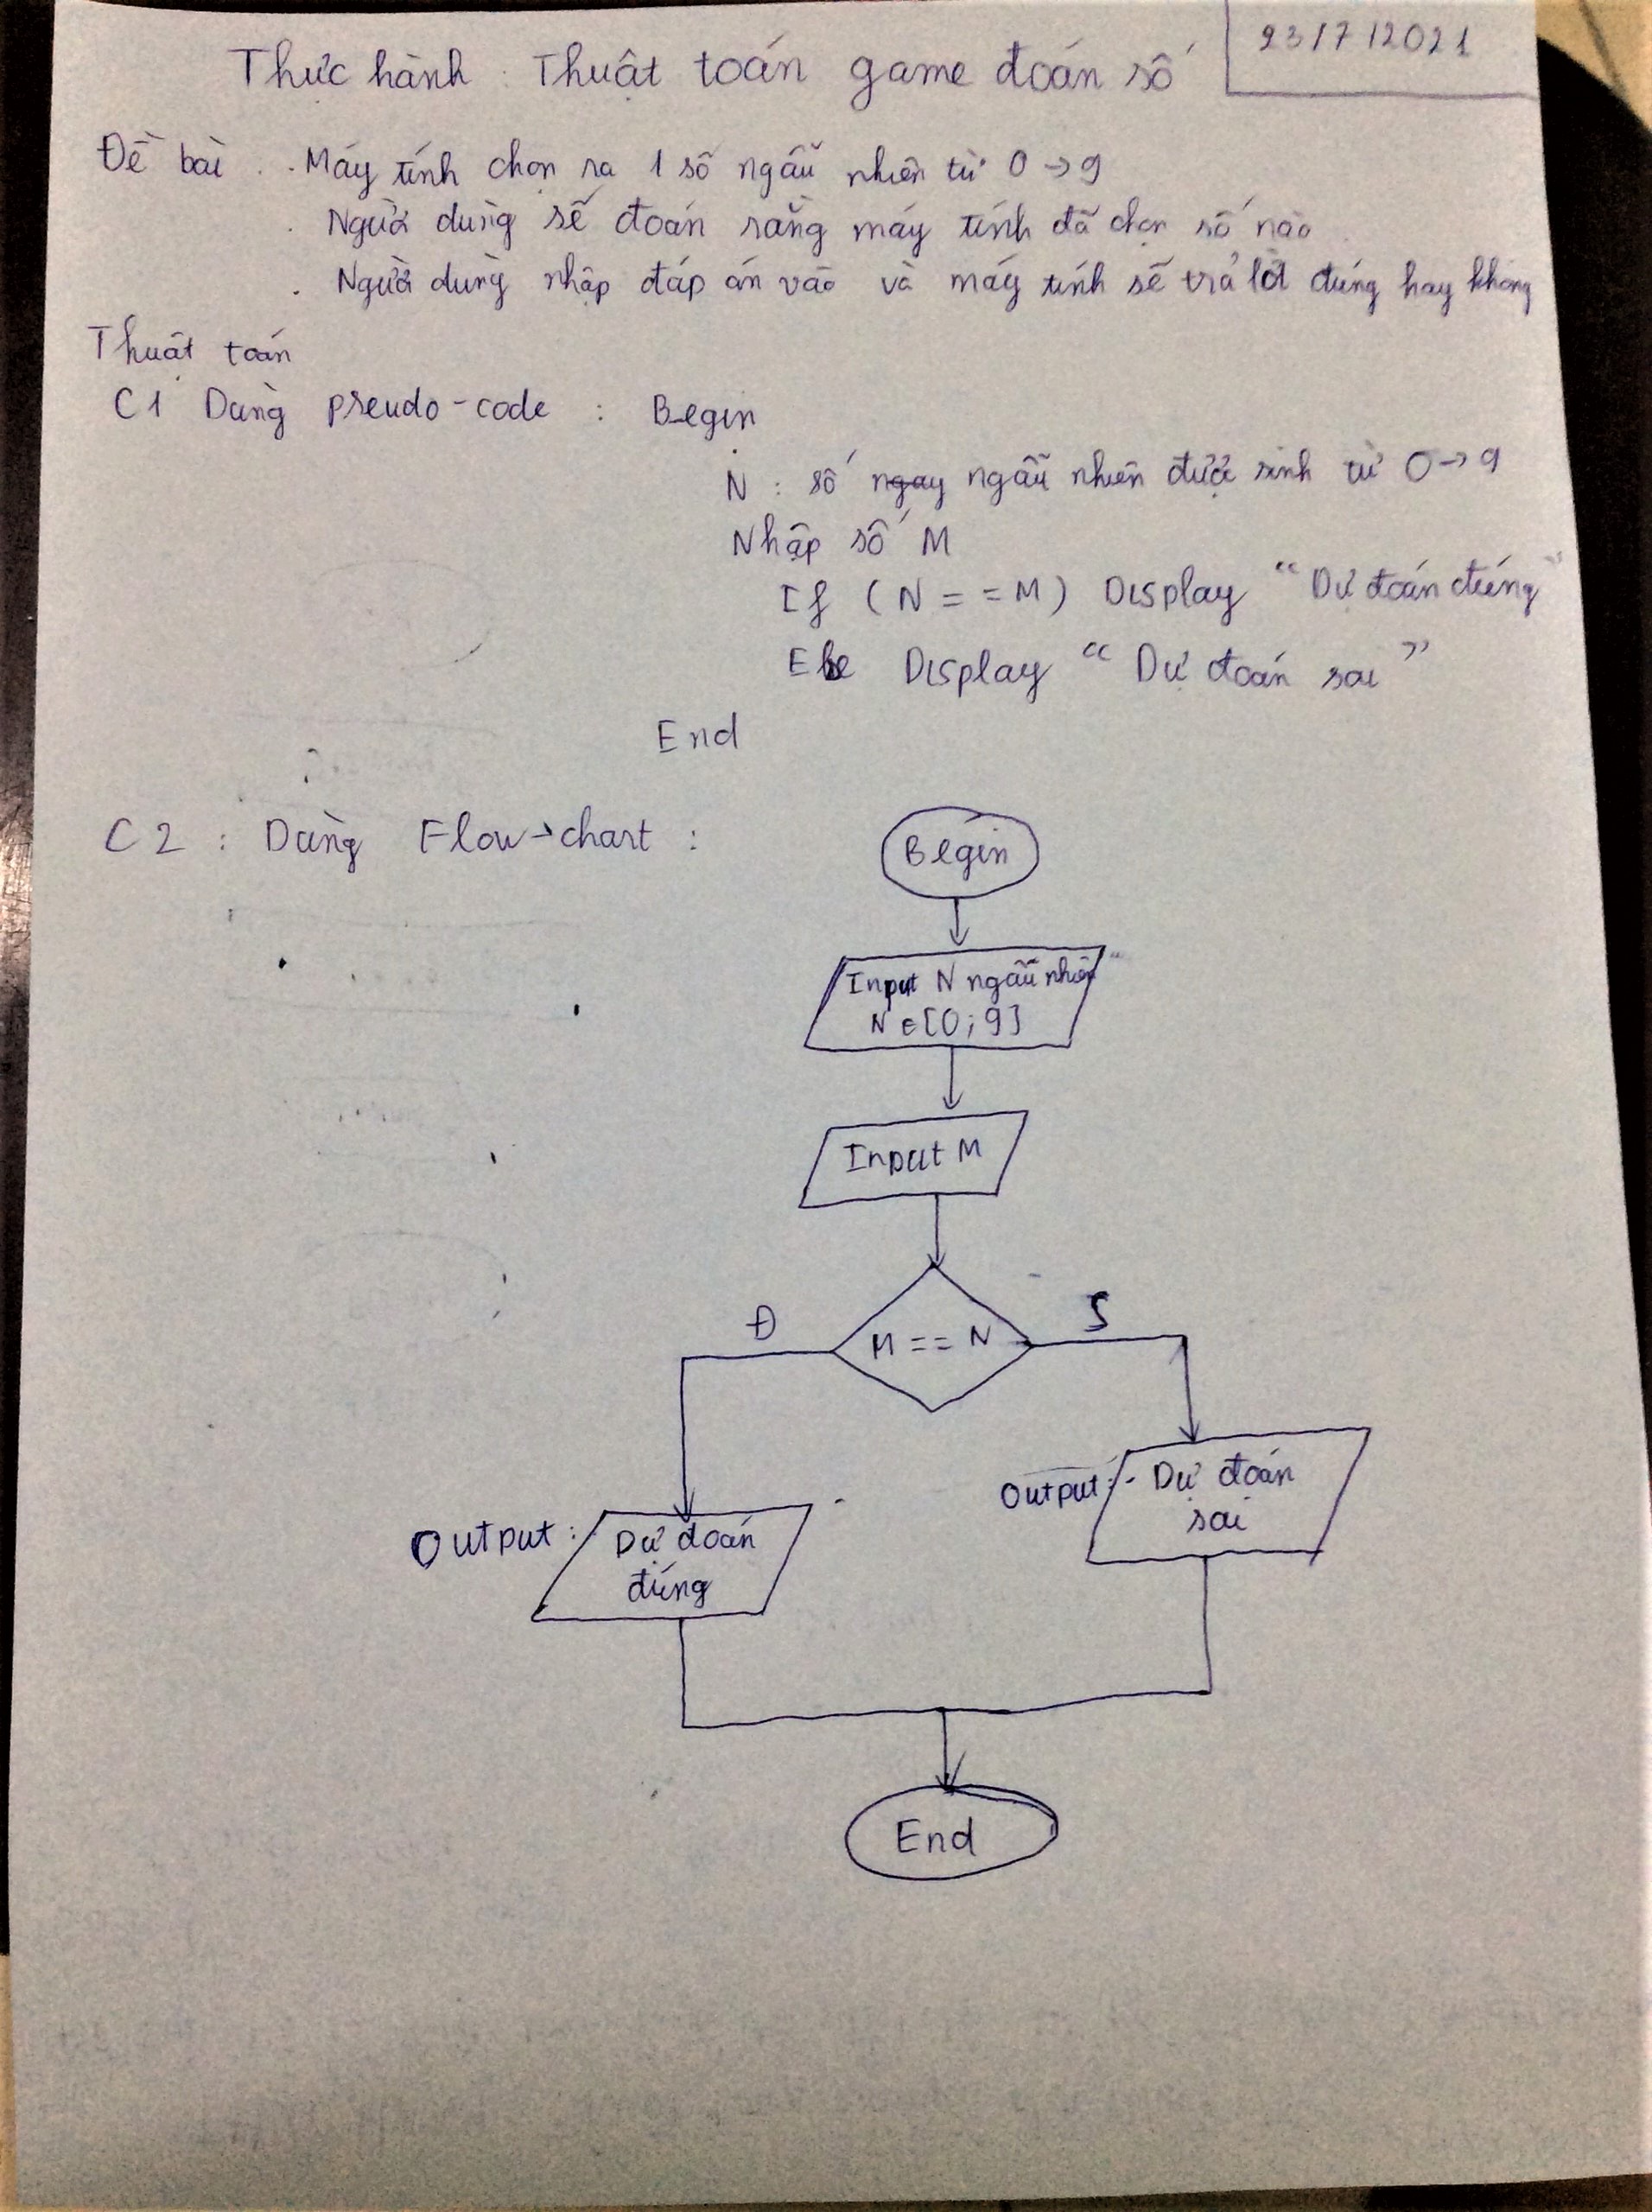 23/7/2021
Thực hành : Thuật toán game đoán số
Đề bài . . Máy tính chọn ra 1 số ngẫu nhiên từ 0 → 9
. Người dùng sẽ đoán rằng máy tính đã chọn số nào
. Người dùng nhập đáp án vào và máy tính sẽ trả lời đúng hay không
Thuật toán
C1 Dùng pseudo-code : Begin
N : số ngay ngẫu nhiên được sinh từ 0 → 9
Nhập số M
If (N = = M) Display "Dự đoán đúng"
Else Display "Dự đoán sai"
End
C2 : Dùng Flow-chart :
Begin
Input N ngẫu nhiên
N ∈ [0; 9]
Input M
M == N
Đ
S
Output : Dự đoán
sai
Output : Dự đoán
đúng
End